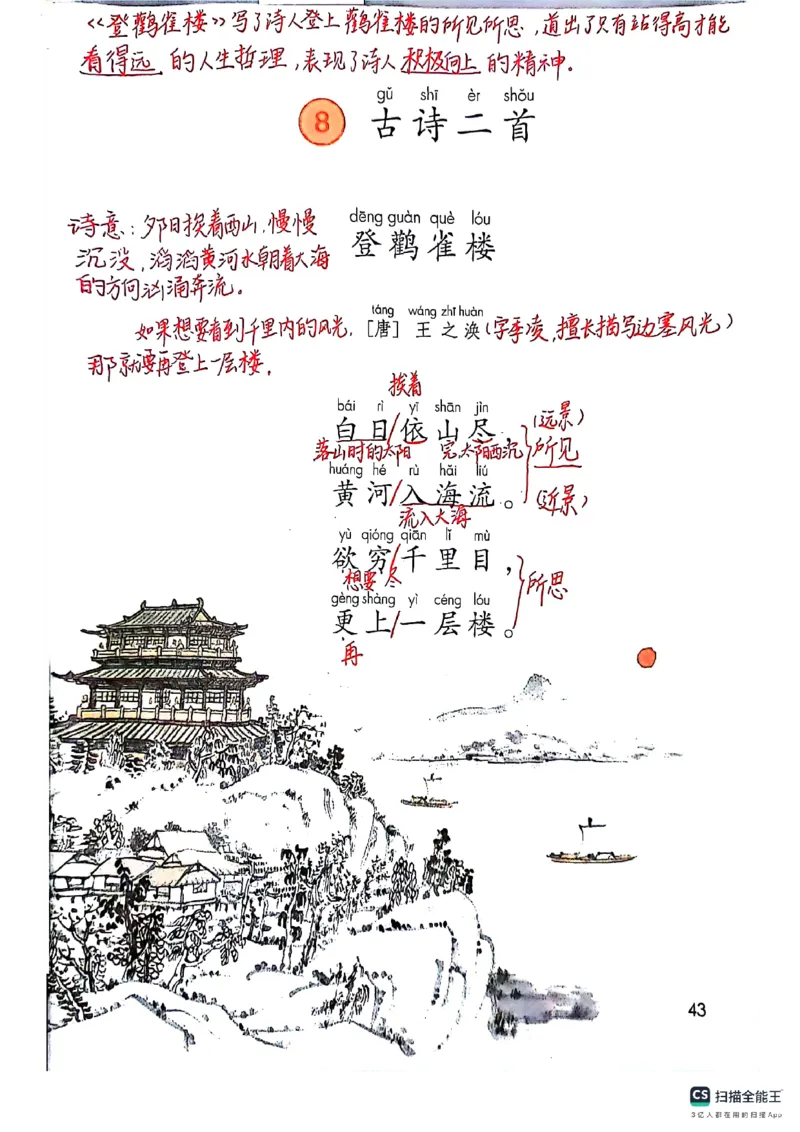 《登鹳雀楼》写了诗人登上鹳雀楼的所见所思,道出了只有站得高才能
看得远 的人生哲理,表现了诗人 积极向上 的精神.
gǔ shī èr shǒu
8 古诗二首
诗意:夕阳挨着西山,慢慢
沉没,滔滔黄河水朝着大海
的方向汹涌奔流。
dēng guàn què lóu
登鹳雀楼
táng wáng zhī huàn
如果想要看到千里内的风光, [唐] 王之涣(字季凌,擅长描写边塞风光)
那就要再登上一层楼.
挨着
bái rì yī shān jìn
白日/依山尽, (远景)
落山时的太阳 完,太阳西沉 所见
huáng hé rù hǎi liú
黄河/入海流。 (近景)
流入大海
yù qióng qiān lǐ mù
欲穷/千里目,
想要 尽 所思
gèng shàng yì céng lóu
更上/一层楼。
再
43
CS 扫描全能王
3亿人都在用的扫描App